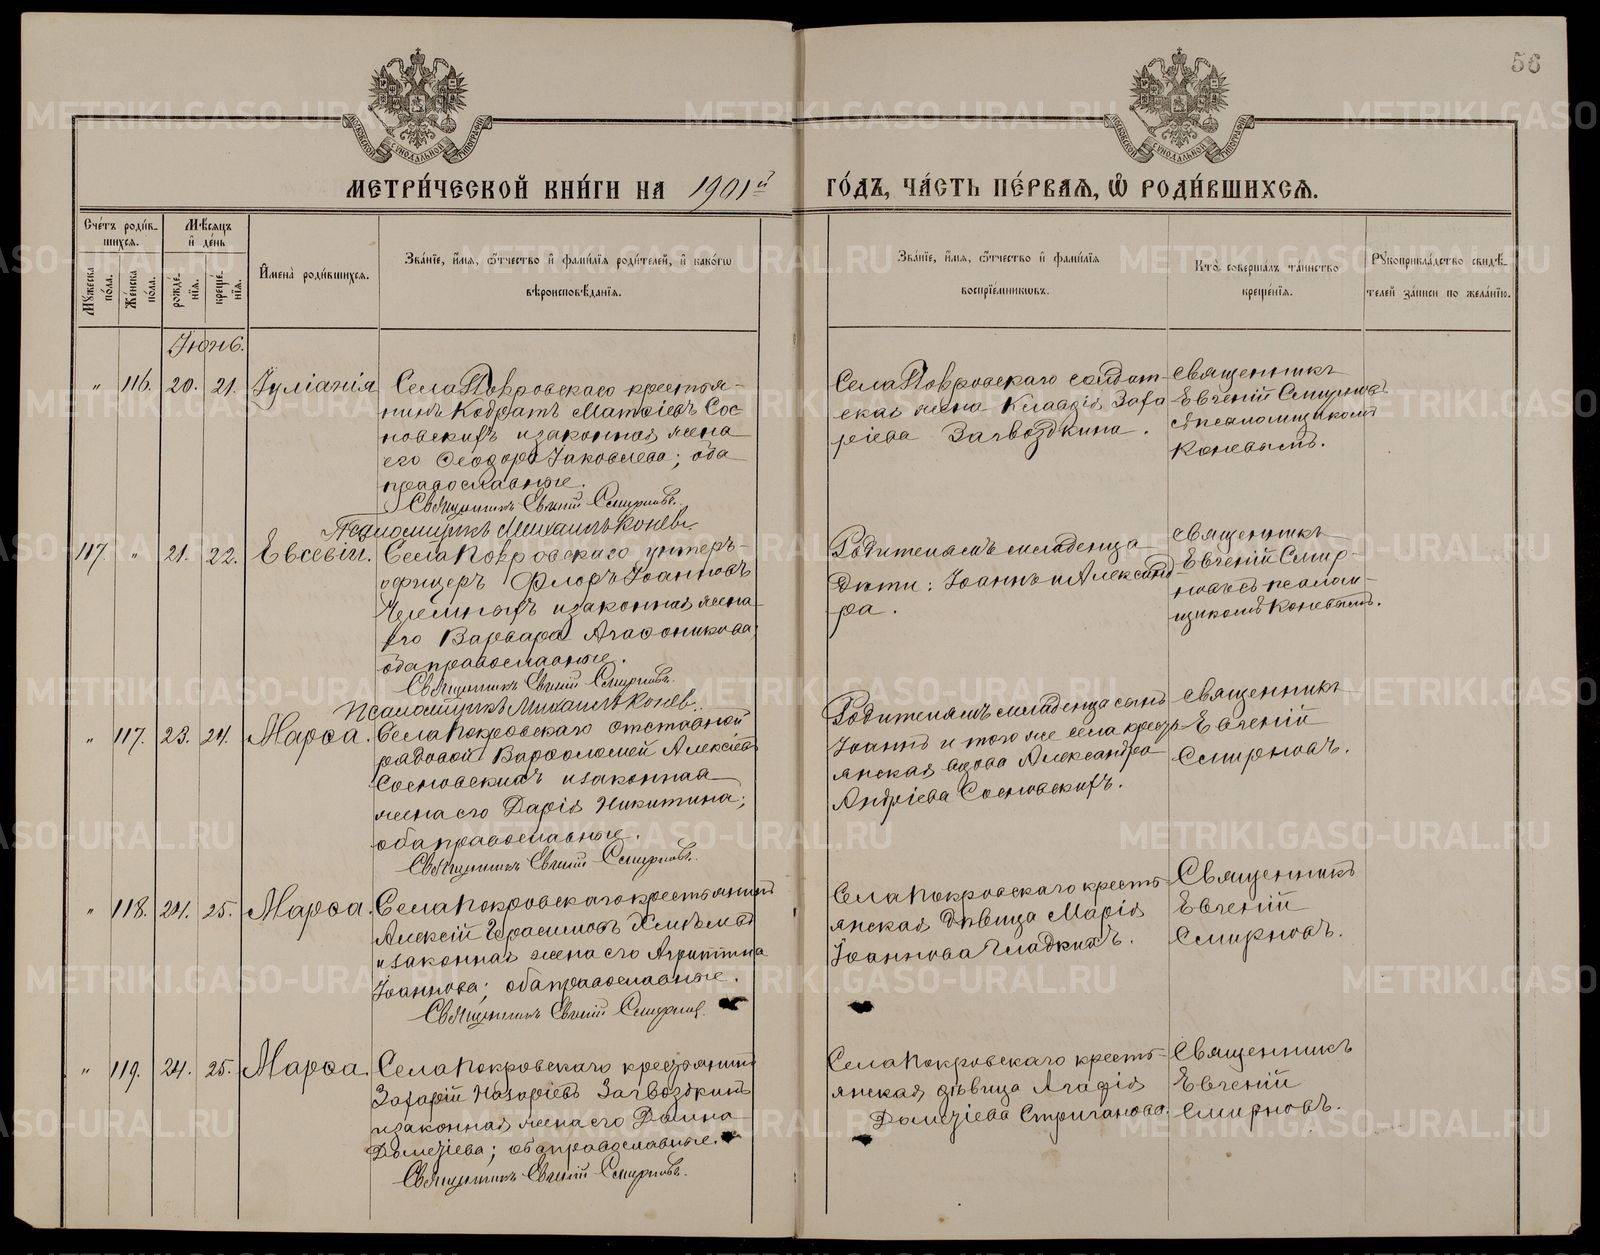 56
МЕТРИ́ЧЕСКОЙ КНИ́ГИ НА 1901й ГО́ДЪ, ЧА́СТЬ ПЕ́РВАѦ, Ѽ РОДИ́ВШИХСѦ.
Сче́тъ роди́в-
шихсѧ.
Мѣ́сѧцъ
и҆ де́нь
Мꙋ́жеска по́ла.
Же́нска по́ла.
рожде́-
нїѧ.
креще́-
нїѧ.
И҆мена̀ роди́вшихсѧ.
Зва́нїе, и҆́мѧ, ѻ҆́тчество и҆ фамилїѧ роди́телей, и҆ како́гѡ
вѣроисповѣ́данїѧ.
Зва́нїе, и҆́мѧ, ѻ҆́тчество и҆ фами́лїѧ
воспрїе́мникѡвъ.
Кто̀ соверша́лъ та́инство
креще́нїѧ.
Рꙋкоприкла́дство свидѣ́-
телей за́писи по жела́нїю.
Іюнь.
" 116. 20. 21. Іуліанія
Села Покровскаго крестья-
нинъ Кодратъ Матѳіевъ Сос
новскихъ и законная жена
его Ѳеодора Іаковлева; оба
православные.
Священникъ Евгеній Смирновъ.
Псаломщикъ Михаилъ Коневъ.
Села Покровскаго солдат-
ская жена Клавдія Заха
ріева Загвоздкина.
Священникъ
Евгеній Смирновъ
съ псаломщикомъ
Коневымъ.
117. " 21. 22. Евсевій.
Села Покровскаго унтеръ-
офицеръ Флоръ Іоанновъ
и законная жена
его Варвара Агаѳоникова;
оба православные.
Священникъ Евгеній Смирновъ.
Псаломщикъ Михаилъ Коневъ.
Родителямъ младенца
дѣти: Іоаннъ и Александ
ра.
Священникъ
Евгеній Смир-
новъ съ псалом-
щикомъ Коневымъ.
" 117. 23. 24. Марѳа.
Села Покровскаго отставной
рядовой Варѳоломей Алексіевъ
Сосновскихъ и законная
жена его Дарія Никитина;
оба православные.
Священникъ Евгеній Смирновъ.
Родителямъ младенца сынъ
Іоаннъ и того же села кресть-
янская вдова Александра
Андріева Сосновскихъ.
Священникъ
Евгеній
Смирновъ.
" 118. 24. 25. Марѳа.
Села Покровскаго крестьянинъ
Алексій Герасимовъ
и законная жена его Агриппина
Іоаннова; оба православные.
Священникъ Евгеній Смирновъ.
Села Покровскаго кресть-
янская дѣвица Марія
Іоаннова Гладкихъ.
Священникъ
Евгеній
Смирновъ.
" 119. 24. 25. Марѳа.
Села Покровскаго крестьянинъ
Захарій Назаріевъ Загвоздкинъ
и законная жена его Домна
Дометіева; оба православные.
Священникъ Евгеній Смирновъ.
Села Покровскаго кресть-
янская дѣвица Агафія
Дометіева Стриганова.
Священникъ
Евгеній
Смирновъ.
METRIKI.GASO-URAL.RU